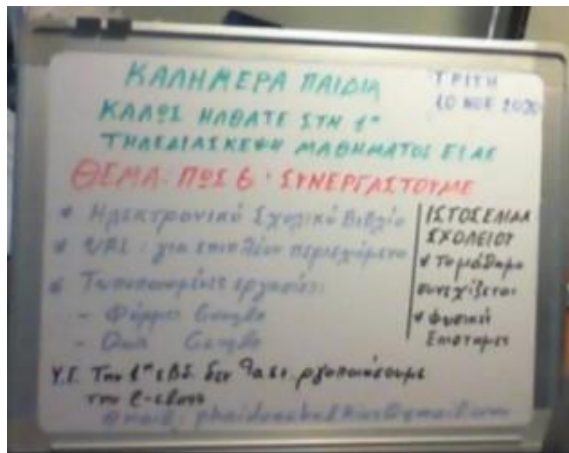 ΚΑΛΗΜΕΡΑ ΠΑΙΔΙΑ
ΤΡΙΤΗ
10 ΝΟΕ 2020
ΚΑΛΩΣ ΗΛΘΑΤΕ ΣΤΗ 1η
ΤΗΛΕΔΙΑΣΚΕΨΗ ΜΑΘΗΜΑΤΟΣ
ΘΕΜΑ: ΠΩΣ Θ ΣΥΝΕΡΓΑΣΤΟΥΜΕ
* Ηλεκτρονικό Σχολικό Βιβλίο
* URL: για επιπλέον περιεχόμενο
* Τυποποιημένες εργασίες:
- Φόρμες Google
- Quiz Google
ΙΣΤΟΣΕΛΙΔΑ
ΣΧΟΛΕΙΟΥ
* Το μάθημα
συνεχίζεται
* Φυσικές
Επιστήμες
Υ.Γ. Την 1η εβδ. δεν θα
την e-class
email: